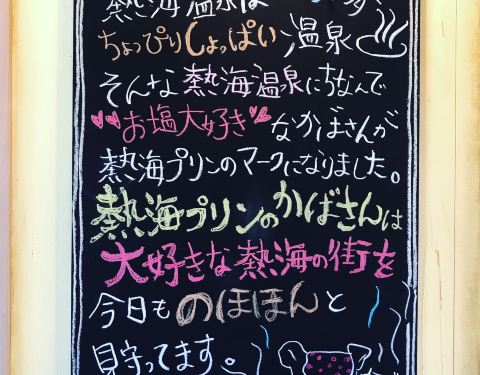 熱海温泉は
ちょっぴりしょっぱい温泉
そんな熱海温泉にちなんで
お塩大好きなかばさんが
熱海プリンのマークになりました。
熱海プリンのかばさんは
大好きな熱海の街を
今日ものほほんと
見守ってます。